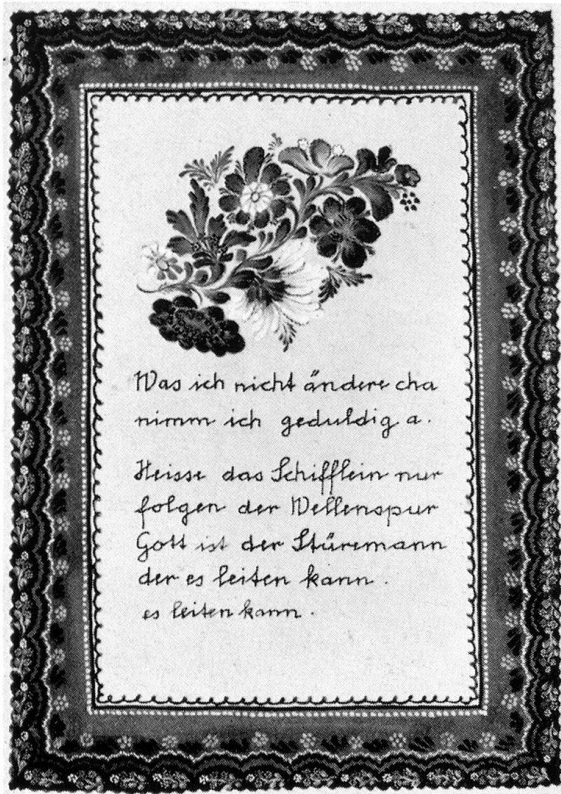 Was ich nicht ändere cha
nimm ich geduldig a.
Heisse das Schifflein nur
folgen der Wellenspur
Gott ist der Stüremann
der es leiten kann.
es leiten kann.